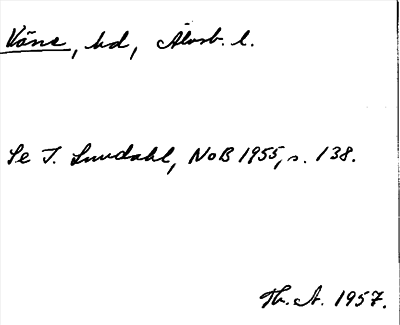 Väne, hd, Älvsb. l.
Se I. Lundahl, NoB 1955, s. 138.
Th. A. 1957.